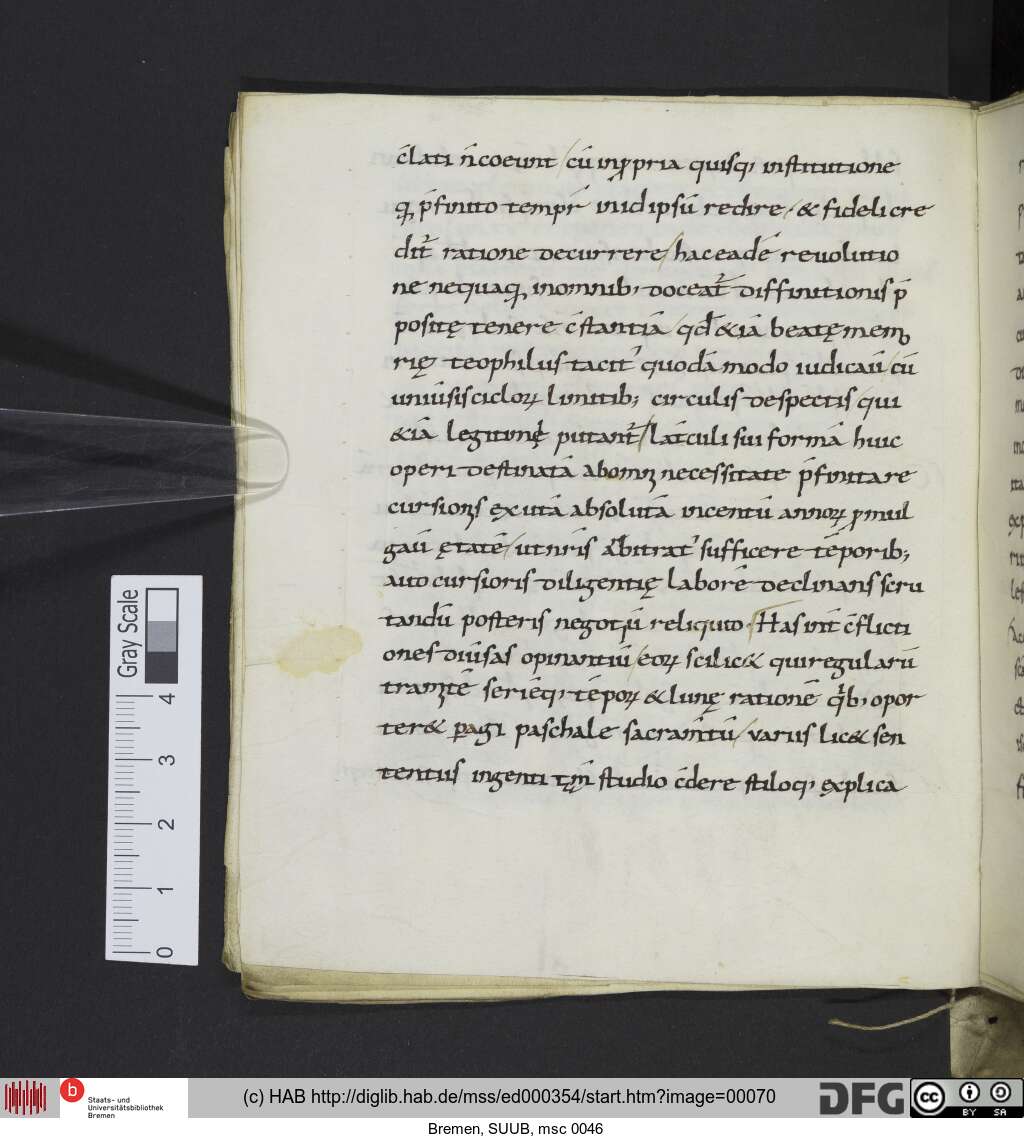 c̄lati n̄ coeunt / cū in ꝓpria quisq; institutione
q, p̄finito tempr̄ in id ipsū redire / & fideli cre
dit̄ ratione decurrere / hac eadē reuolutio
ne nequaq, in omnib; doceat̄ diffinitionis p̄
positę tenere c̄stantiā / qd̄ & iā beatę memo
rię teophilus tacit' quodā modo iudicaū / cū
uniuīsis cicloꝝ limitib; circulis despectis qui
& iā putant̄ / lat̄culi sui formā huic
operi destinatā ab omī necessitate p̄finitare
cursioīs ęxutā absolutā in centū annoꝝ ꝓmul
gaū ętatē / ut nr̄is arbitrat' sufficere tēporib;
aut o cursioris diligentię laborē declinans scru
tandū posteris negotiū reliquit o. Has int̄ c̄flicti
ones diūsas opinantiū / eoꝝ scilic& qui regulariū
tramitē seriēq; tēpoꝝ & lunę rationē qib; opor
ter& ꝑagi paschale sacram̄tū / variis lic& sen
tentiis ingenti tm̄ studio c̄dere stiloq; ęxplica
Gray Scale
4
3
2
1
0
b
Staats- und
Universitätsbibliothek
Bremen
(c) HAB http://diglib.hab.de/mss/ed000354/start.htm?image=00070
DFG
cc BY SA
Bremen, SUUB, msc 0046